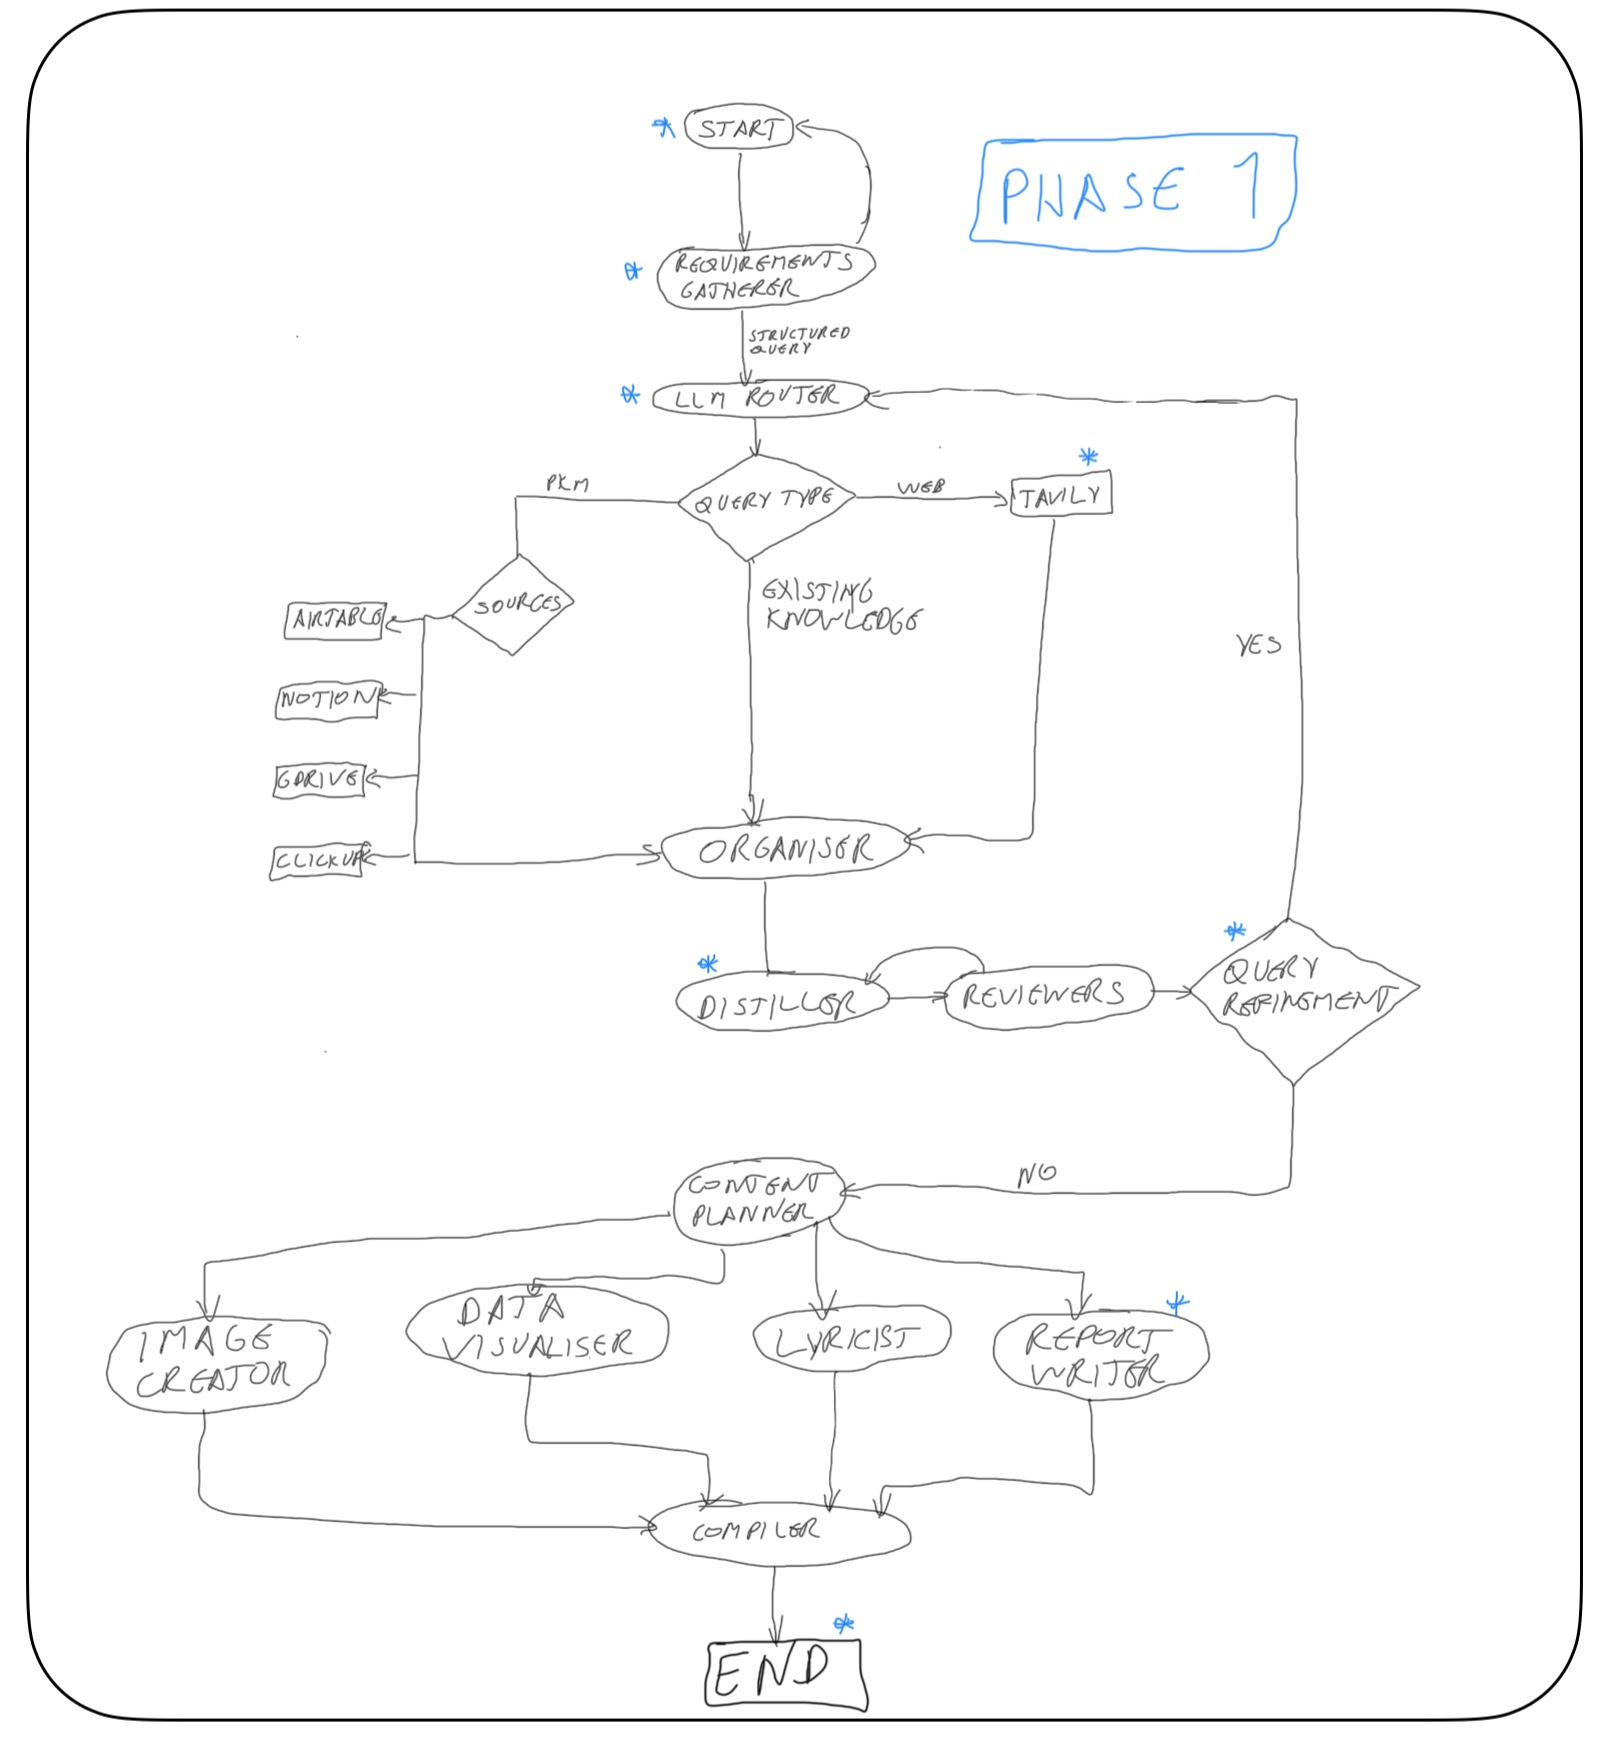 START
PHASE 1
REQUIREMENTS
GATHERER
STRUCTURED
QUERY
LLM ROUTER
PKM
QUERY TYPE
WEB
TAVILY
EXISTING
KNOWLEDGE
SOURCES
AIRTABLE
NOTION
GDRIVE
CLICKUP
YES
ORGANISER
DISTILLER
REVIEWERS
QUERY
REFINEMENT
NO
CONTENT
PLANNER
IMAGE
CREATOR
DATA
VISUALISER
LYRICIST
REPORT
WRITER
COMPILER
END